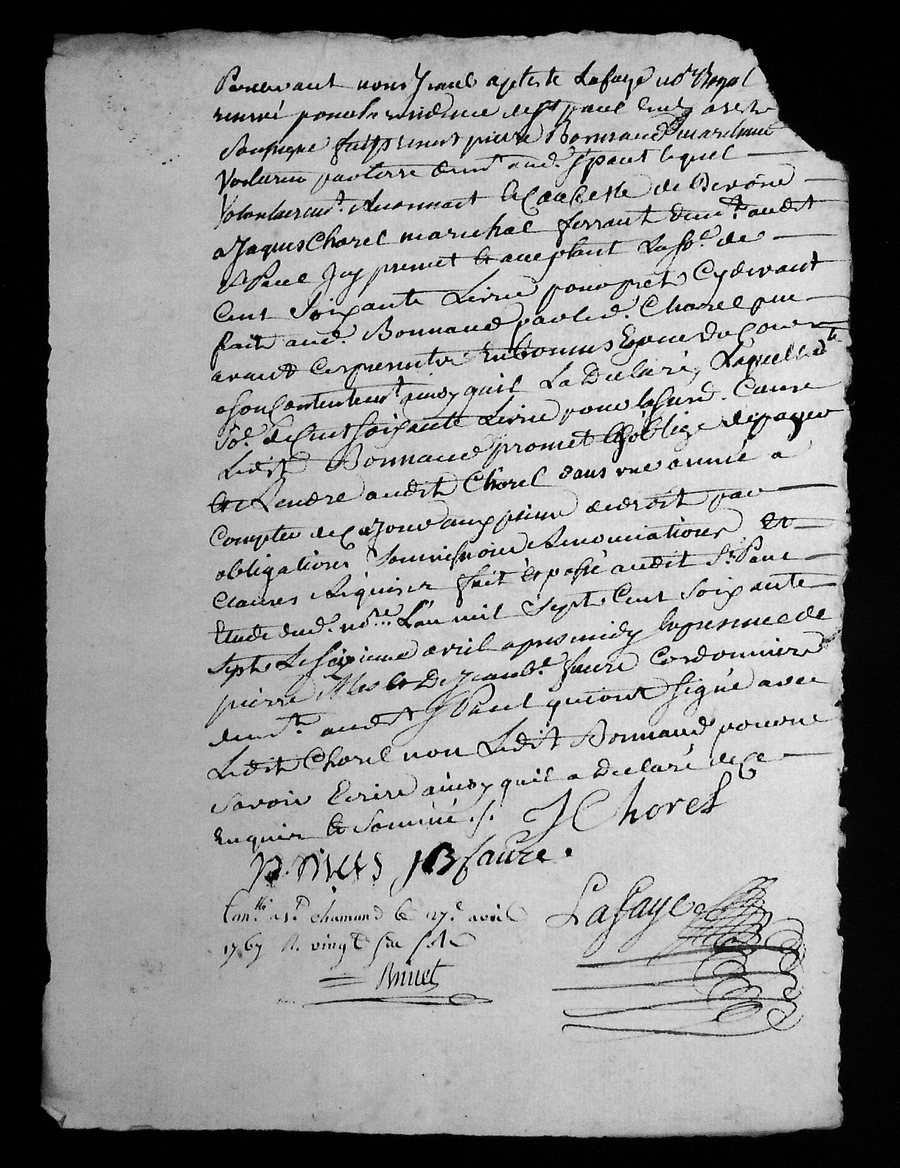 Pardevant nous Jean baptiste Lafaye no.re Royal
reservé pour la residence de St. paul en
Soussigné fut present pierre Bonnaud marchand
Voiturier par terre demt. aud. St paul lequel
Volontairemt.
a Jaques Chorel marechal ferrant demt. audit
St Paul Icy present et acceptant La so.e de
Cent Soixante Livre pour pret Cydevant
fait aud. Bonnaud par led. Chorel
avant Ces presentes En bonnes Especes de Cours
a son Contentemt. ainsy quil La Declaré, Laquelle de
So.e de Cent Soixante Livre pour la susd. Cause
Ledit Bonnaud promet et soblige de payer
et Rendre audit Chorel dans une année a
Compter de Ce Jour aux peines de droit par
obligations Soumissions Renonciations et
Clauses Requises fait et passé audit St. Paul
Etude dud. no.re L'an mil Sept Cent Soixante
Sept Le avril apres midy En presence de
pierre et De Jean bt. faure Cordonniers
demt. audit St Paul qui ont signé avec
Ledit Chorel non Ledit Bonnaud pour ne
Savoir Ecrire ainsy quil a Declaré de Ce
Enquis et Sommé ./.
J Chorel
JB faure.
Lafaye
Conllé a St chamond le 27e avril
1767 R. vingt six sols